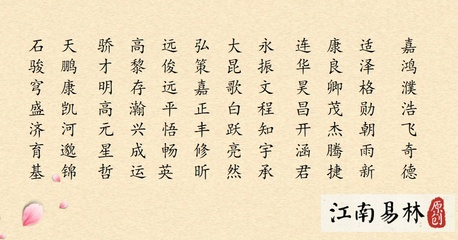 石 天 骄 高 远 弘 大 永 连 康 适 嘉
骏 鹏 才 黎 俊 策 昆 振 华 良 泽 鸿
穹 康 明 存 远 嘉 歌 文 昊 卿 格 濮
盛 凯 高 瀚 平 正 白 程 昌 茂 勋 浩
济 河 元 兴 悟 丰 跃 知 开 杰 朝 飞
育 邈 星 成 畅 修 亮 宇 涵 腾 雨 奇
基 锦 哲 运 英 昕 然 承 君 捷 新 德
江南易林 原创